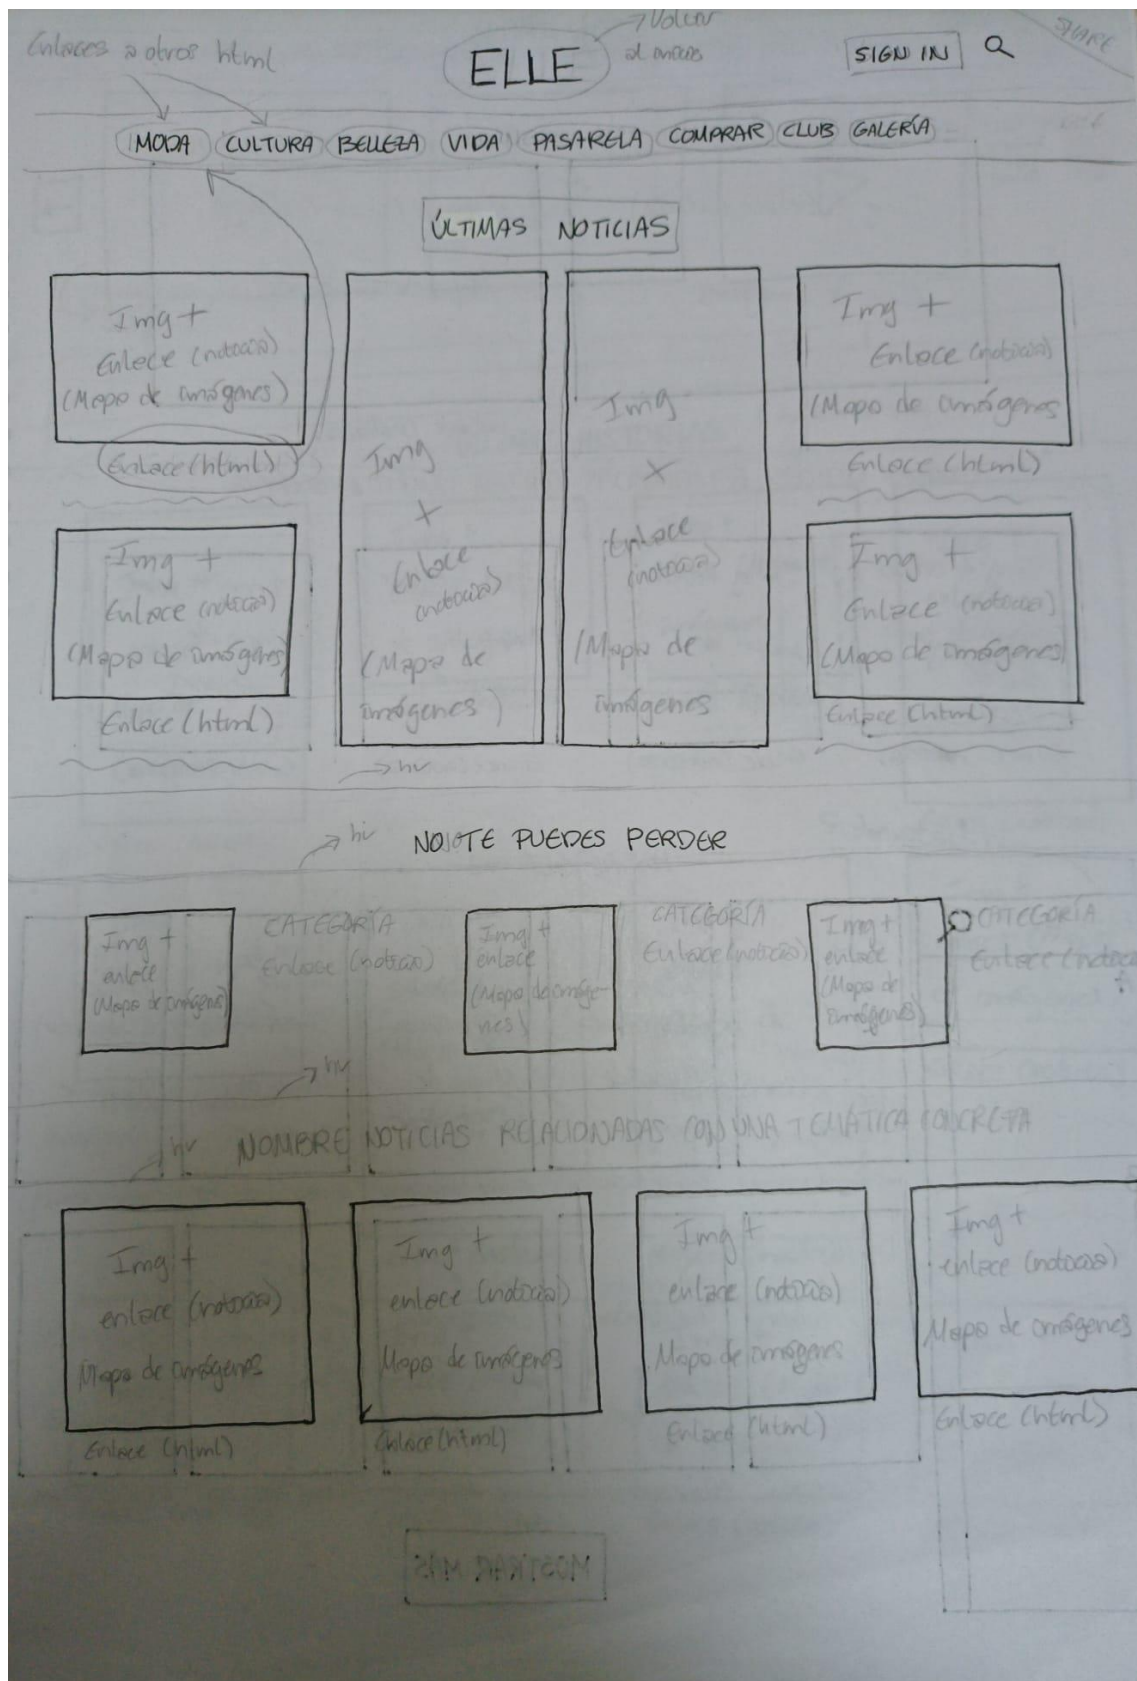 Enlaces a otros html
ELLE
Volver
al inicio
SIGN IN
MODA CULTURA BELLEZA VIDA PASARELA COMPRAR CLUB GALERÍA
ÚLTIMAS NOTICIAS
Img +
Enlace (noticia)
(Mapa de imágenes)
Enlace (html)
Img +
Enlace (noticia)
(Mapa de imágenes)
Enlace (html)
Img
+
Enlace
(noticia)
(Mapa de
imágenes)
Img
+
Enlace
(noticia)
(Mapa de
imágenes
Img +
Enlace (noticia)
(Mapa de imágenes
Enlace (html)
Img +
Enlace (noticia)
(Mapa de imágenes)
Enlace (html)
hr
hr
NO TE PUEDES PERDER
Img +
enlace
(Mapa de imágenes)
CATEGORÍA
Enlace (noticia)
Img +
enlace
(Mapa de imáge-
nes)
CATEGORÍA
Enlace (noticia)
Img +
enlace
(Mapa de
imágenes)
CATEGORÍA
Enlace (noticia
hr
hr
NOMBRE NOTICIAS RELACIONADAS CON UNA TEMÁTICA CONCRETA
Img +
enlace (noticia)
Mapa de imágenes
Enlace (html)
Img +
enlace (noticia)
Mapa de imágenes
Enlace (html)
Img +
enlace (noticia)
Mapa de imágenes
Enlace (html)
Img +
enlace (noticia)
Mapa de imágenes
Enlace (html)
MOSTRAR MÁS